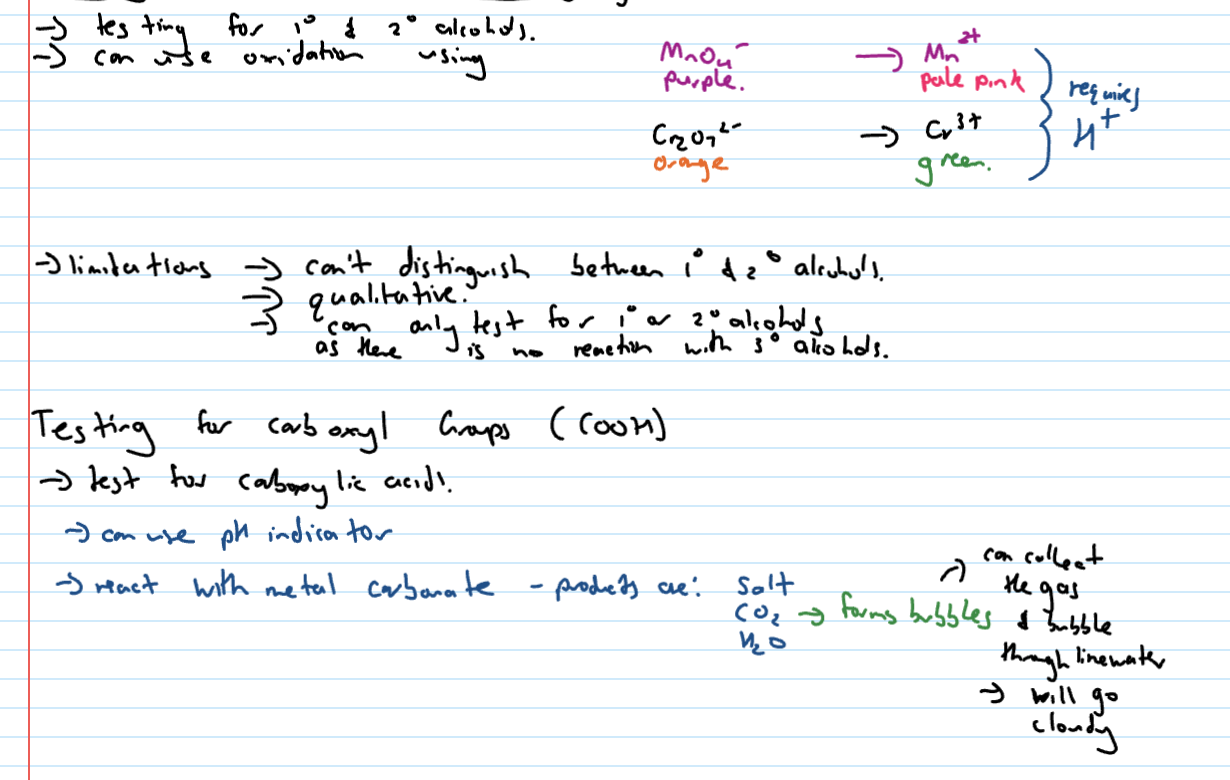 → testing for 1° & 2° alcohols.
→ can use oxidation using
MnO₄⁻ → Mn²⁺
purple. pale pink
requires
H⁺
Cr₂O₇²⁻ → Cr³⁺
orange green.
→ limitations → can't distinguish between 1° & 2° alcohols.
→ qualitative.
→ can only test for 1° or 2° alcohols
as there is no reaction with 3° alcohols.
Testing for carboxyl Groups (COOH)
→ test for carboxylic acids.
→ can use pH indicator
→ react with metal carbonate - products are: Salt
CO₂ → forms bubbles
H₂O
→ can collect
the gas
& bubble
through limewater
→ will go
cloudy